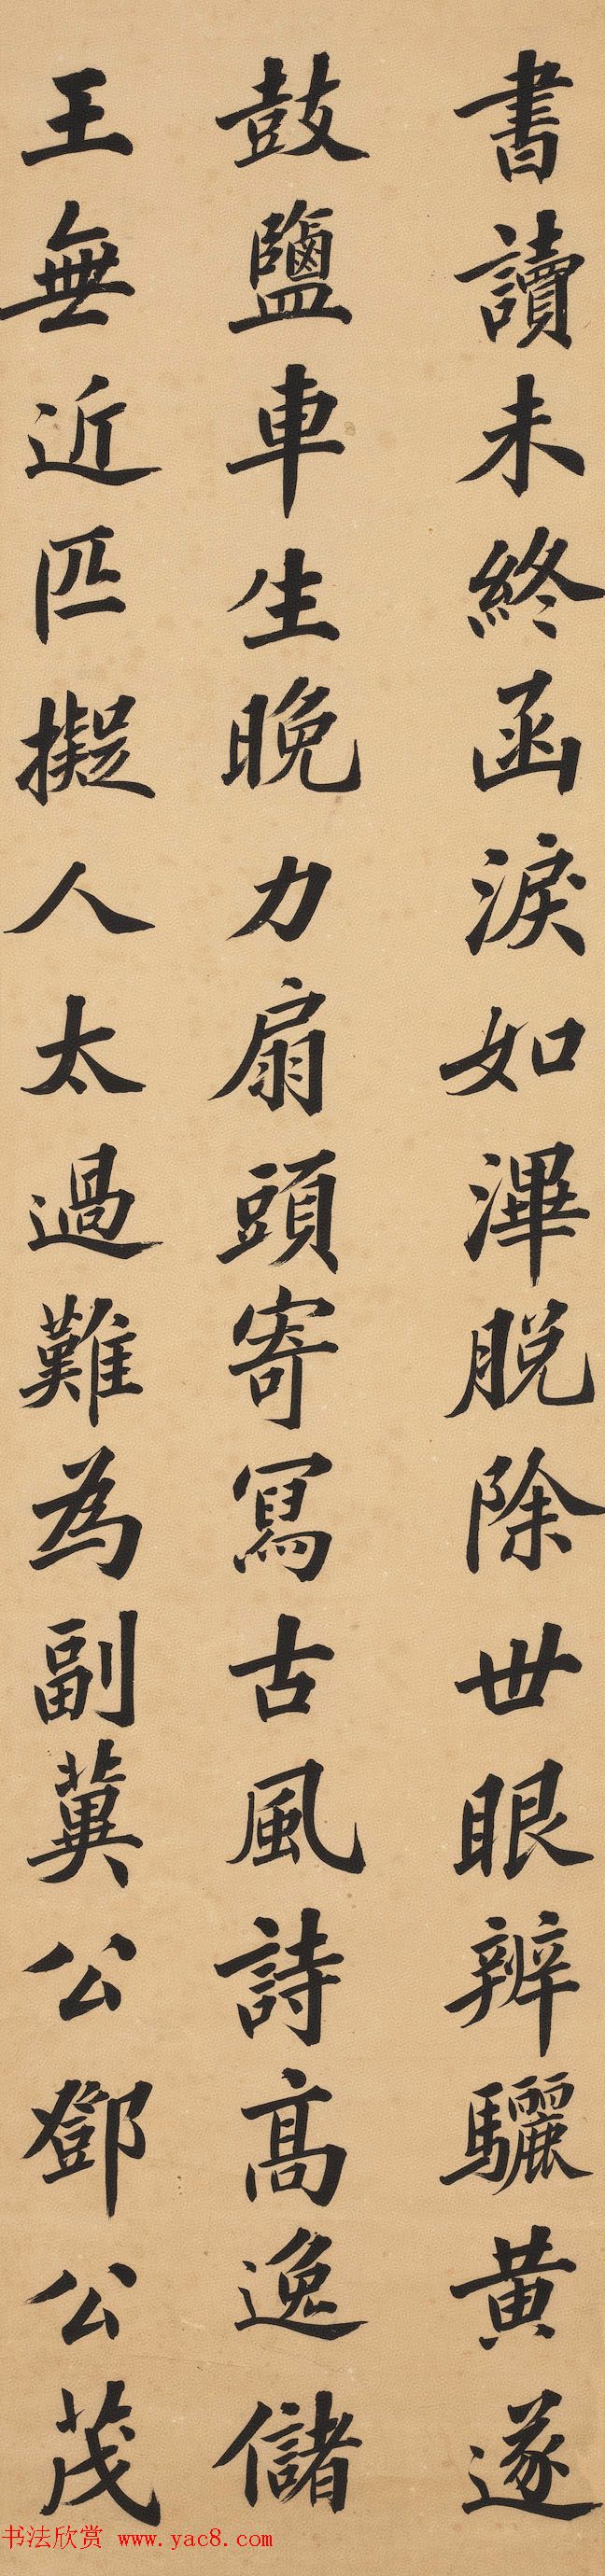 書讀未終函淚如渾脫除世眼辨驪黃遂
鼓鹽車生晚力扇頭寄寫古風詩高逸儲
王無近匹擬人太過難為副冀公鄧公茂
书法欣赏 www.yac8.com